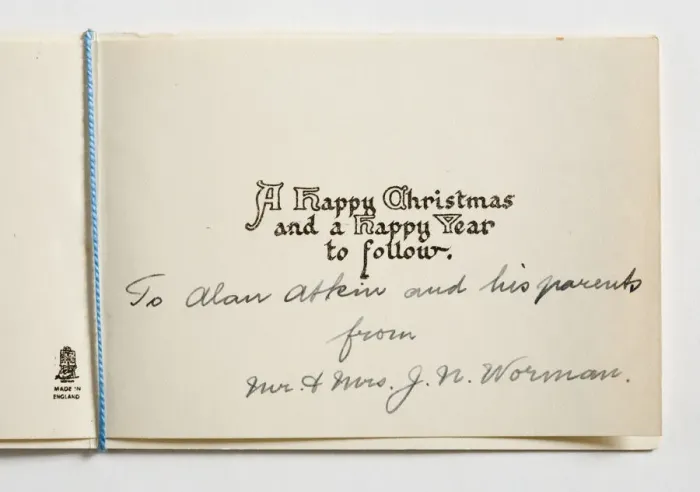 A Happy Christmas
and a Happy Year
to follow.
To Alan Atkin and his parents
from
Mr. & Mrs. J. N. Worman.
MADE IN
ENGLAND